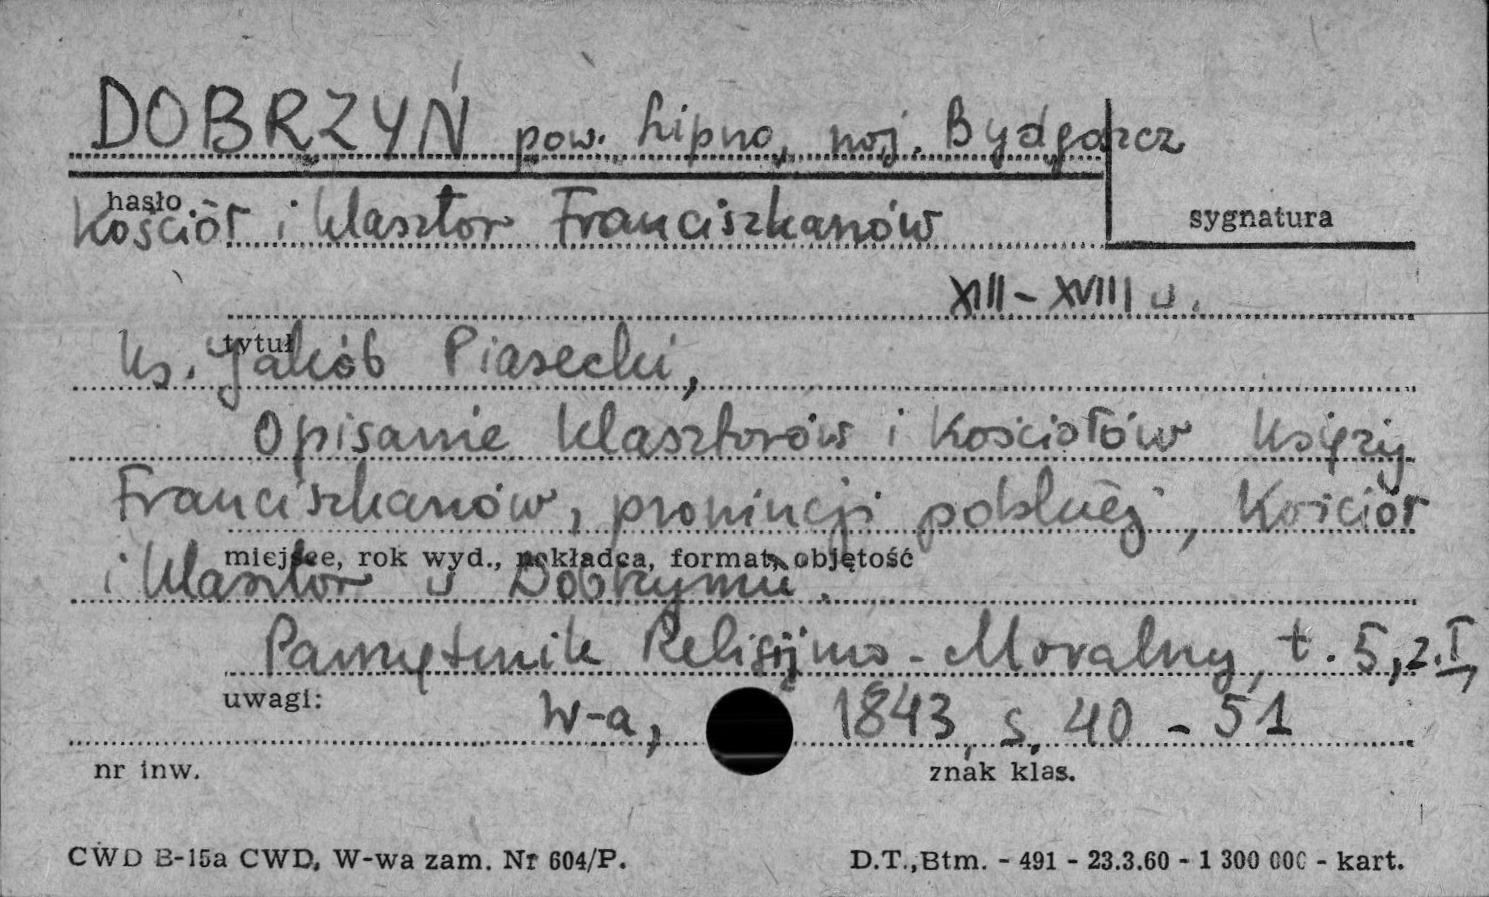 DOBRZYŃ pow. Lipno, woj. Bydgoszcz
hasło
Kościół i klasztor Franciszkanów
sygnatura
XIII - XVIII w.
tytuł
Ks. Jakób Piasecki,
Opisanie klasztorów i kościołów księży
Franciszkanów, prowincji polskiéj, Kościół
miejsce, rok wyd., nakładca, format, objętość
i klasztor w Dobrzyniu.
Pamiętnik Religijno-Moralny, t. 5, z. I,
uwagi:
W-a, 1843, s. 40 - 51
nr inw.
znak klas.
CWD B-15a CWD, W-wa zam. Nr 604/P.
D.T.,Btm. - 491 - 23.3.60 - 1 300 000 - kart.